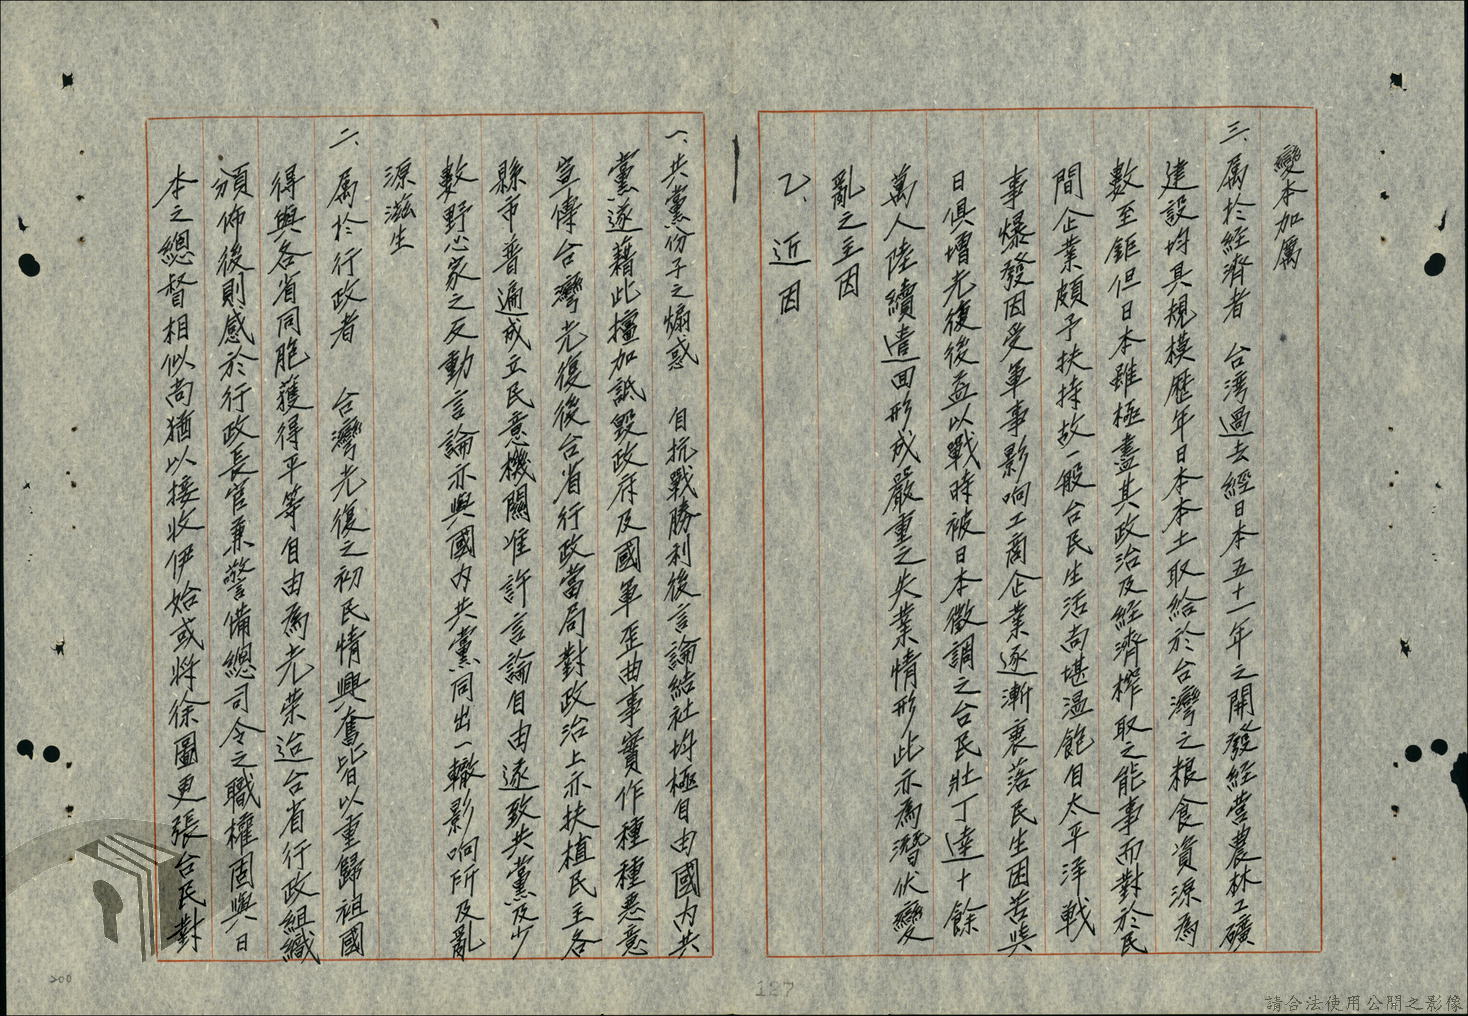 變本加厲
三、屬於經濟者　台湾過去經日本五十一年之開發經営農林工礦
建設均具規模歷年日本本土取給於台灣之粮食資源為
數至鉅但日本雖極盡其政治及經濟榨取之能事而對於民
間企業頗予扶持故一般台民生活尚堪温飽自太平洋戦
事爆發因受軍事影响工商企業逐漸衰落民生困苦與
日俱增光復後益以戰時被日本徵調之台民壯丁達十餘
萬人陸續遣回形成嚴重之失業情形此亦為潛伏變
亂之主因
乙、近因
一、共黨份子之煽惑　自抗戰勝利後言論結社均極自由國内共
黨遂藉此擅加詆毀政府及國軍歪曲事實作種種悪意
宣傳台灣光復後台省行政當局對政治上亦扶植民主各
縣市普遍成立民意機關准許言論自由遂致共黨及少
數野心家之反動言論亦與國内共黨同出一轍影响所及亂
源滋生
二、屬於行政者　台灣光復之初民情興奮皆以重歸祖國
得與各省同胞獲得平等自由為光荣迨台省行政組織
頒佈後則感於行政長官兼警備總司令之職權固與日
本之總督相似尚猶以接收伊始或将徐圖更張台民對
127
200
請合法使用公開之影像